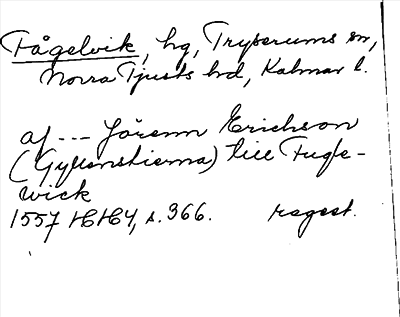 Fågelvik, hg, Tryserums sn,
Norra Tjusts hd, Kalmar l.
af --- Jörenn Erichson
(Gyllenstierna) till Fugle-
wick
1557 HH4, s. 366. regest.